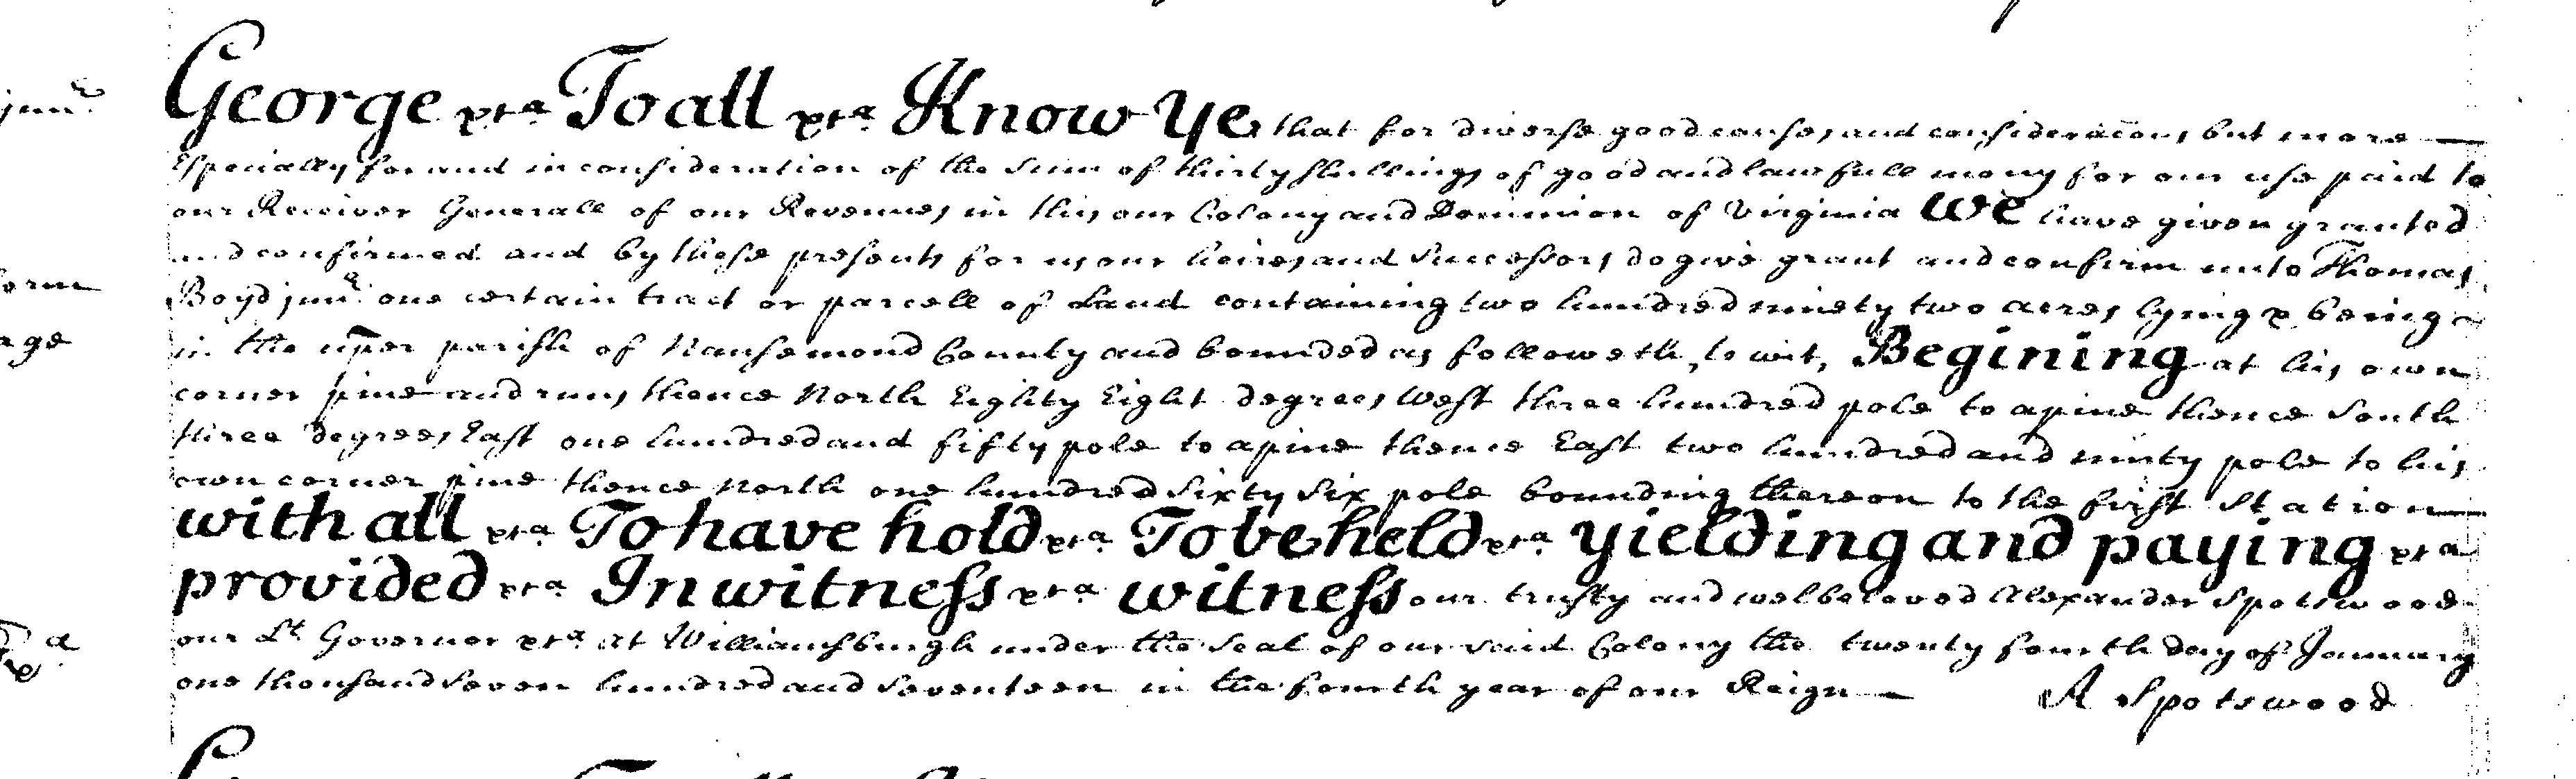 George &c.a To all &c.a Know Ye that for diverse good causes and consideracons but more
Especially for and in consideration of the Sum of thirty shillings of good and lawfull mony for our use paid to
our Receiver Generall of our Revenues in this our Colony and Dominion of Virginia We have given granted
and confirmed and by these presents for us our heires and Successors do give grant and confirm unto Thomas
jun.r
Boyd jun.r one certain tract or parcell of Land containing two hundred ninety two acres lying & being
in the upper parish of Nansemond County and bounded as followeth, to wit, Begining at his own
corner pine and runs thence North Eighty Eight degrees West three hundred pole to a pine thence South
three degrees East one hundred and fifty pole to a pine thence East two hundred and ninty pole to his
own corner pine thence North one hundred Sixty Six pole bounding thereon to the first Station
with all &c.a To have hold &c.a To be held &c.a yielding and paying &c.a
provided &c.a In witness &c.a witness our trusty and welbeloved Alexander Spotswood
our L.t Governor &c.a at Williamsburgh under the Seal of our said Colony the twenty fourth day of January
one thousand Seven hundred and Seventeen in the fourth year of our Reign
A Spotswood